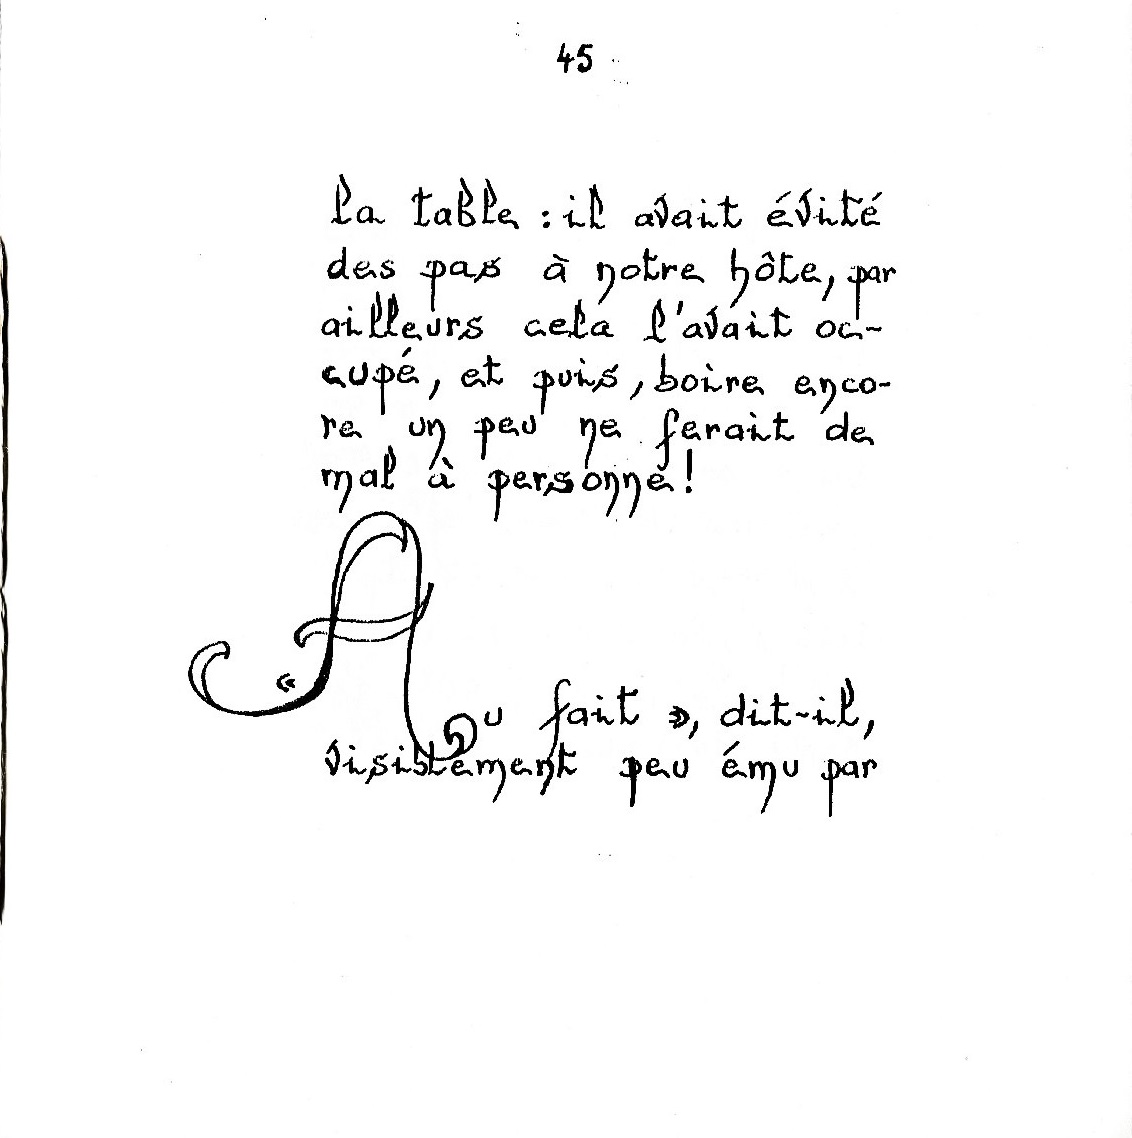 45
la table : il avait évité
des pas à notre hôte, par
ailleurs cela l'avait oc-
cupé, et puis, boire enco-
re un peu ne ferait de
mal à personne !
« Au fait », dit-il,
visiblement peu ému par